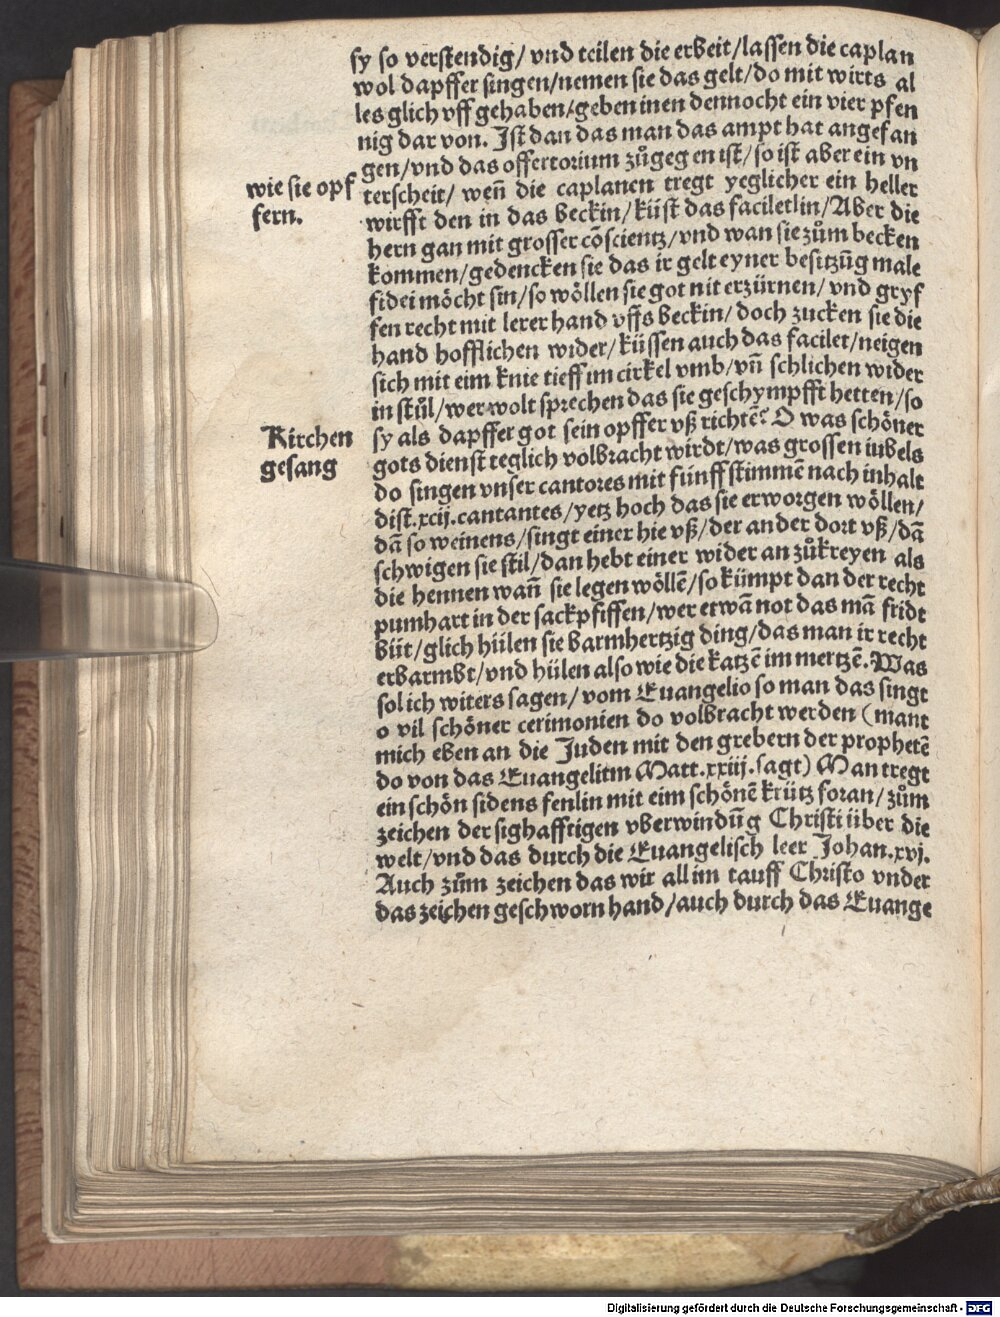 sy so verstendig/ vnd teilen die erbeit/lassen die caplan
wol dapffer singen/nemen sie das gelt/do mit wirts al
les glich vff gehaben/geben inen dennocht ein vier pfen
nig dar von. Ist dan das man das ampt hat angefan
gen/vnd das offertorium zůgegen ist/so ist aber ein vn
wie sie opf
fern.
terscheit/ weñ die caplanen tregt yeglicher ein heller
wirfft den in das beckin/küst das faciletlin/Aber die
hern gan mit grosser cõscientz/vnd wan sie zům becken
kommen/gedencken sie das ir gelt eyner besitzũg male
fidei möcht sin/so wöllen sie got nit erzürnen/ vnd gryf
fen recht mit lerer hand vffs beckin/doch zucken sie die
hand hofflichen wider/küssen auch das facilet/neigen
sich mit eim knie tieff im cirkel vmb/vñ schlichen wider
in stůl/wer wolt sprechen das sie geschympfft hetten/so
Kirchen
gesang
sy als dapffer got sein opffer vß richtẽ? O was schöner
gots dienst teglich volbracht wirdt/was grossen iubels
do singen vnser cantores mit fünff stimmẽ nach inhalt
dist.xcij.cantantes/yetz hoch das sie erworgen wöllen/
dã so weinens/singt einer hie vß/der ander dort vß/dã
schwigen sie stil/dan hebt einer wider an zůkreyen als
die hennen wañ sie legen wöllẽ/so kümpt dan der recht
pumhart in der sackpfiffen/wer etwã not das mã fridt
büt/glich hülen sie barmhertzig ding/das man ir recht
erbarmbt/vnd hülen also wie die katzẽ im mertzẽ. Was
sol ich witers sagen/ vom Euangelio so man das singt
o vil schöner cerimonien do volbracht werden (mant
mich eben an die Juden mit den grebern der prophetẽ
do von das Euangelium Matt.xxiij.sagt) Man tregt
ein schön sidens fenlin mit eim schönẽ krütz foran/zům
zeichen der sighafftigen vberwindũg Christi über die
welt/vnd das durch die Euangelisch leer Johan.xvj.
Auch zům zeichen das wir all im tauff Christo vnder
das zeichen geschworn hand/auch durch das Euange
Digitalisierung gefördert durch die Deutsche Forschungsgemeinschaft - DFG